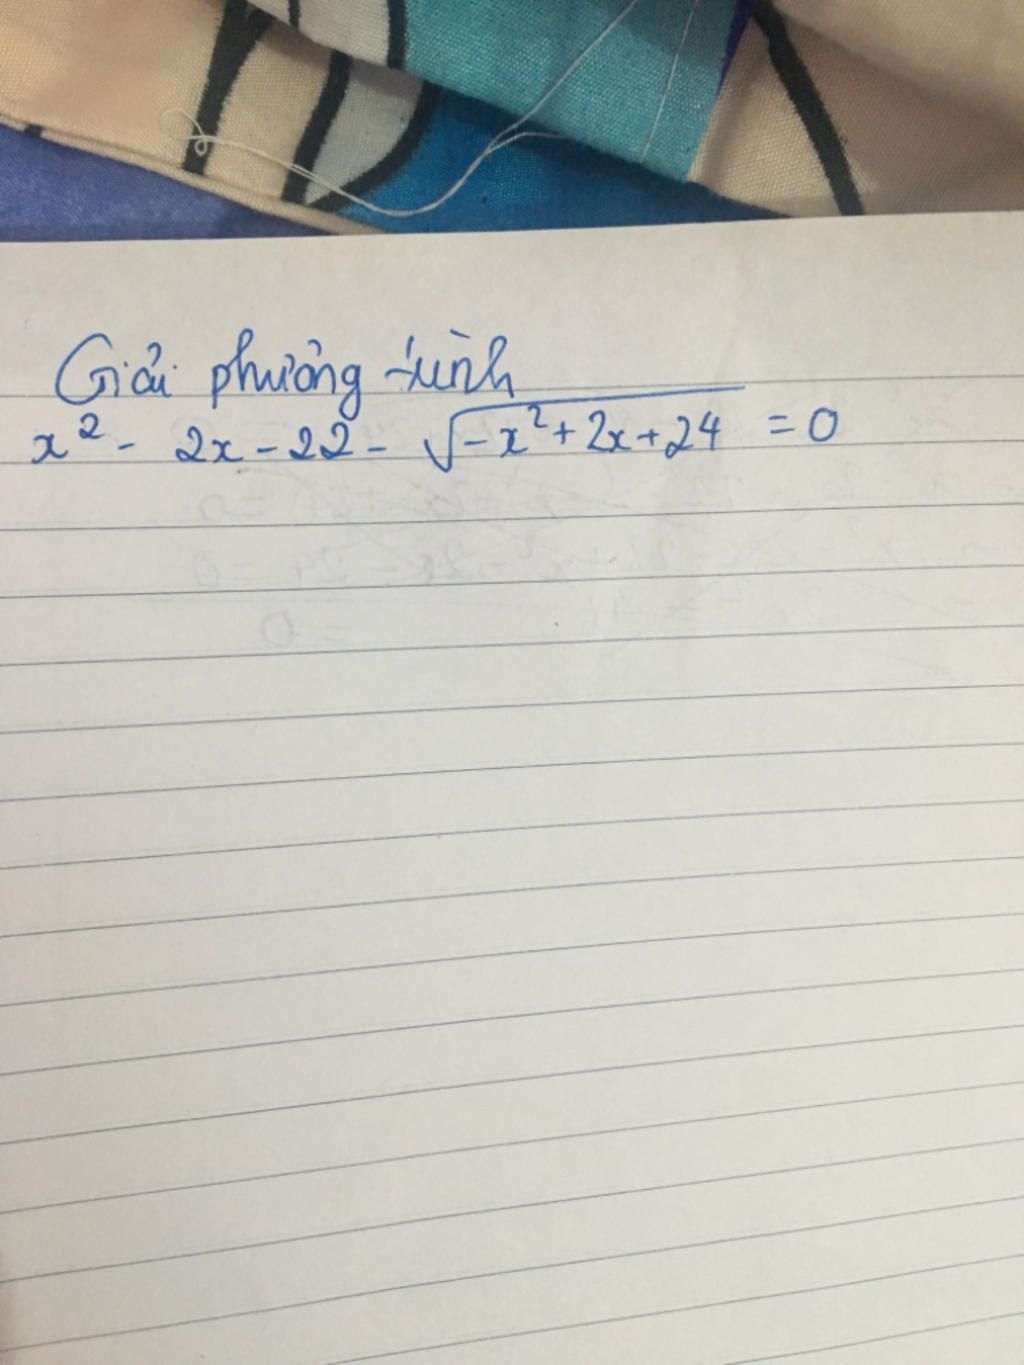 Giải phương trình
x² - 2x - 22 - √(-x² + 2x + 24) = 0